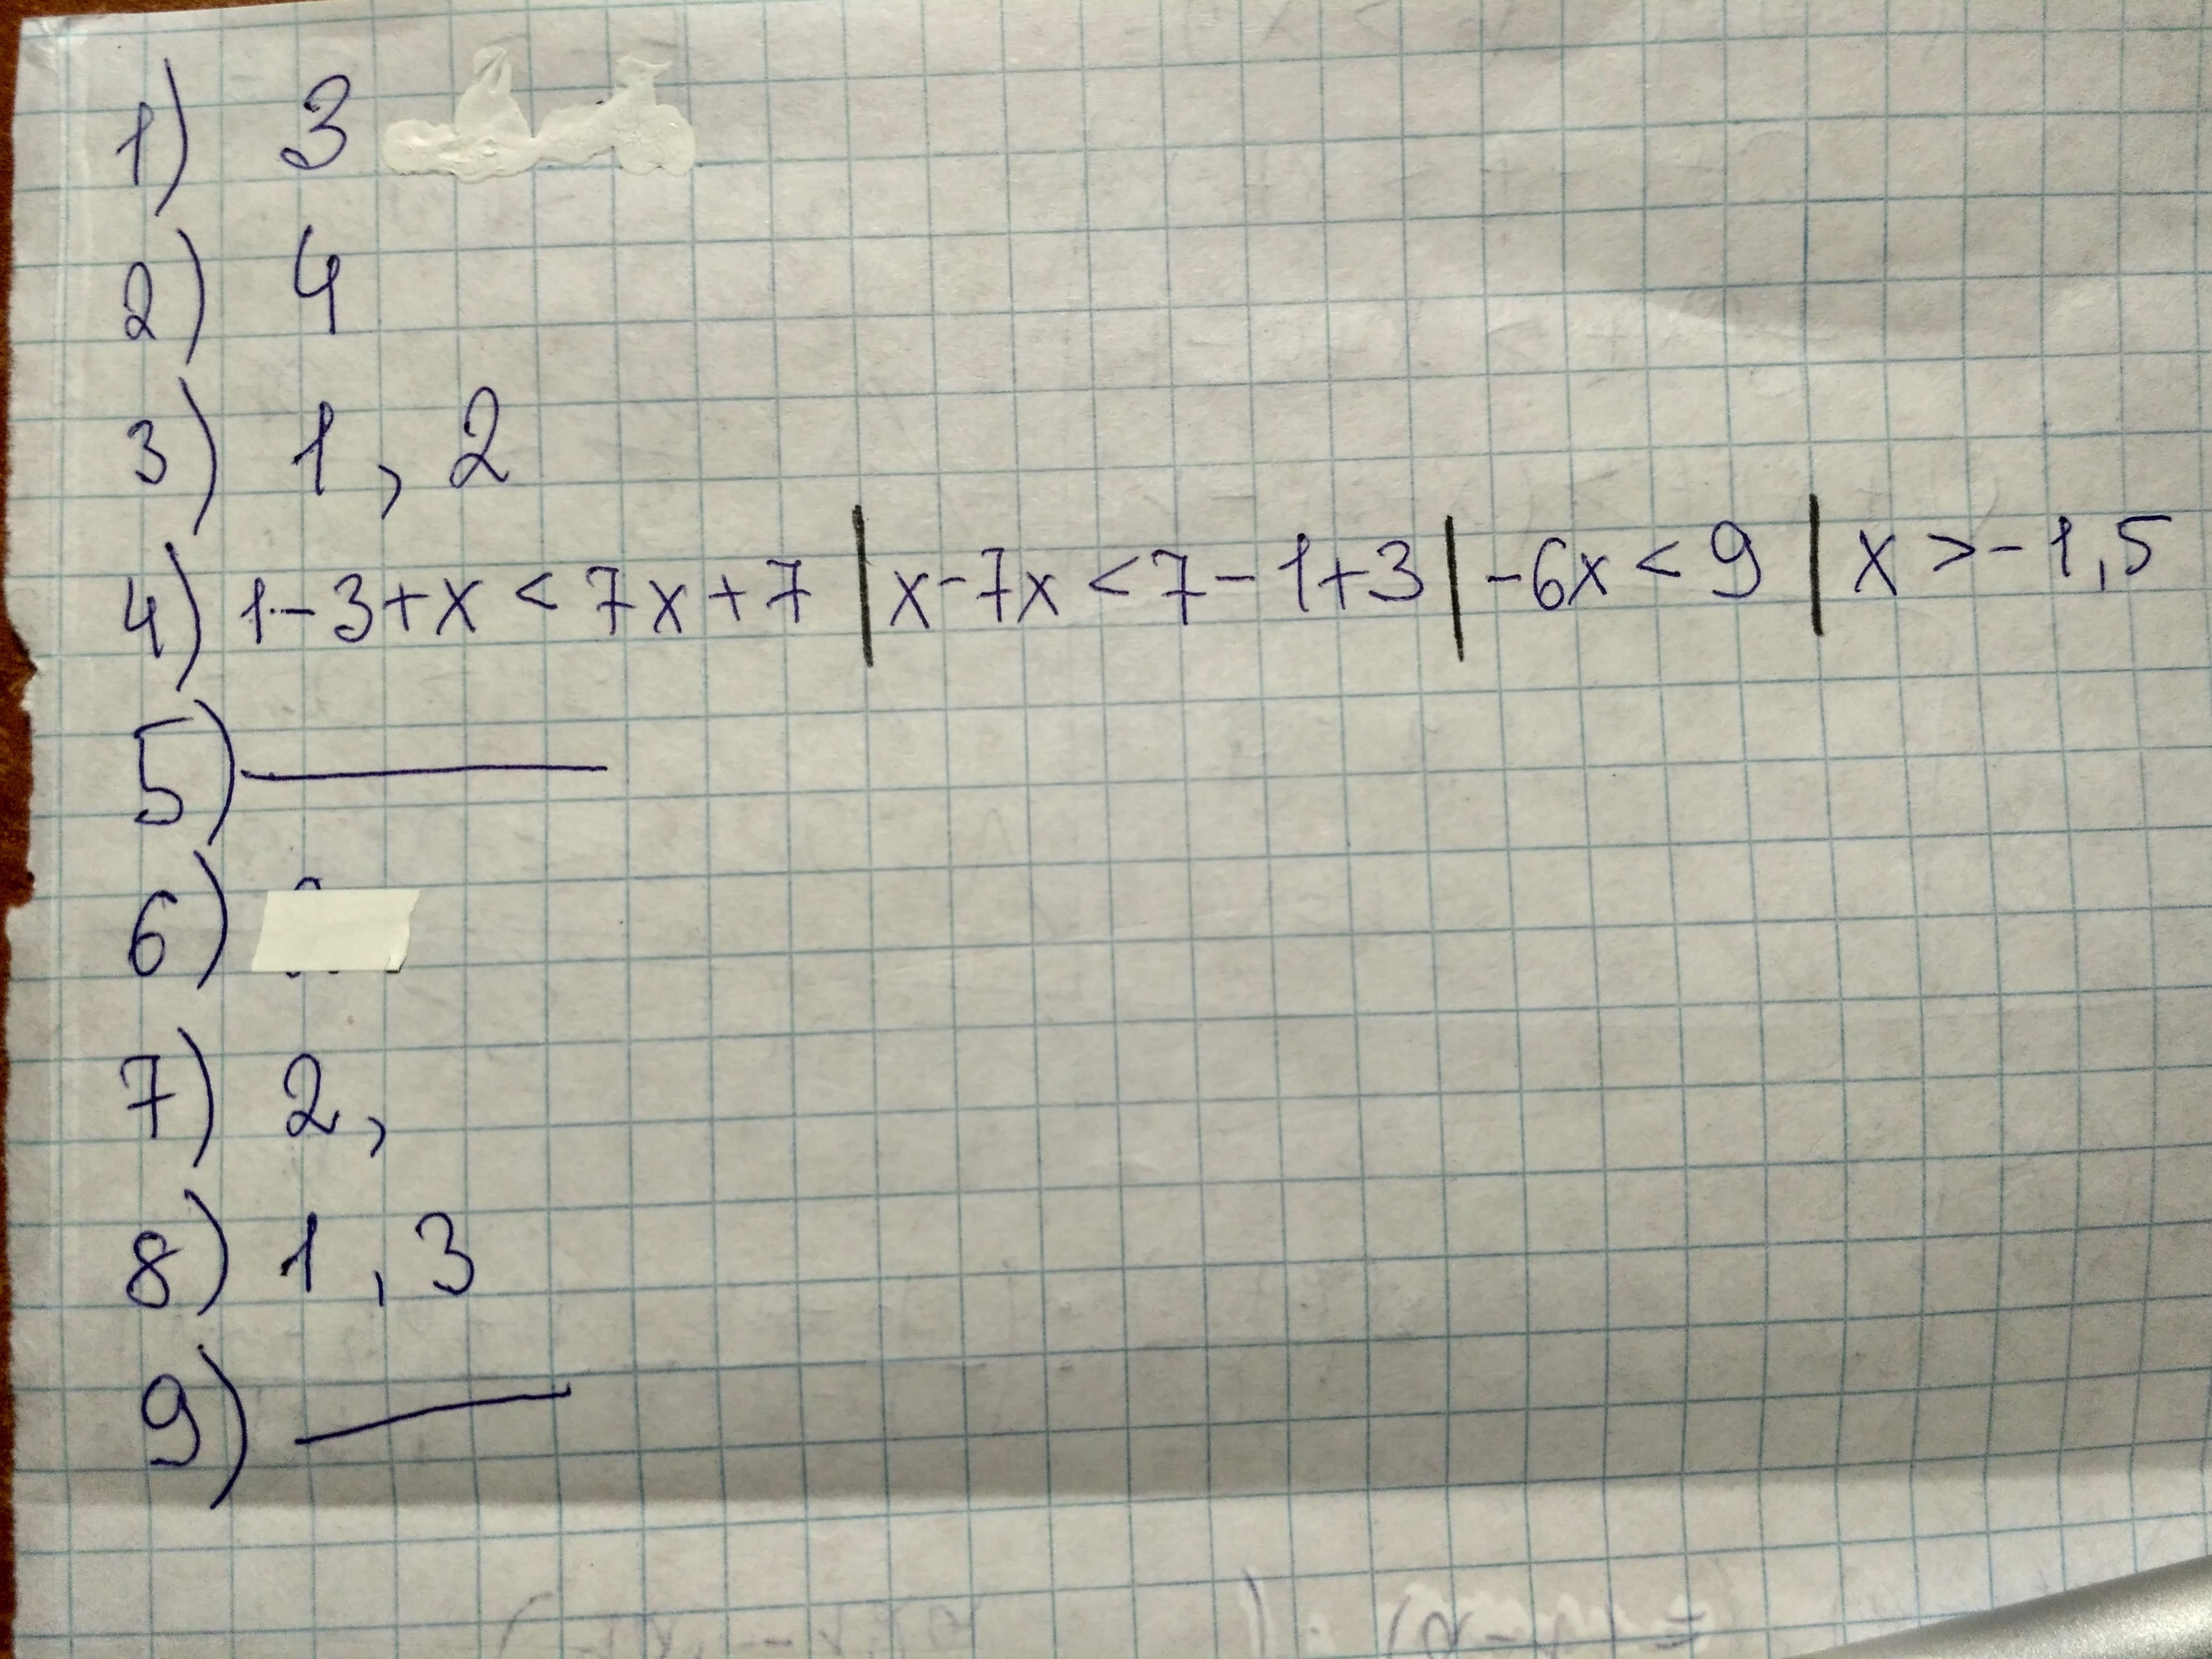 1) 3
2) 4
3) 1, 2
4) 1-3+x<7x+7 | x-7x<7-1+3 | -6x<9 | x>-1,5
5) —
6)
7) 2,
8) 1, 3
9) —